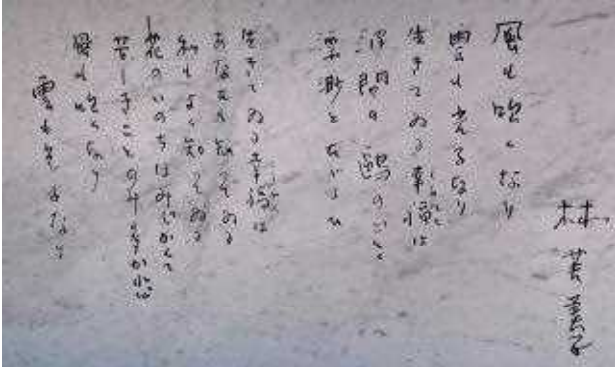 林芙美子
風も吹くなり
雲も光るなり
生きてゐる幸福は
波間の鷗のごとく
漂渺とたゞよひ
生きてゐる幸福は
あなたも知つてゐる
私もよく知つてゐる
花のいのちはみじかくて
苦しきことのみ多かれど
風も吹くなり
雲も光るなり